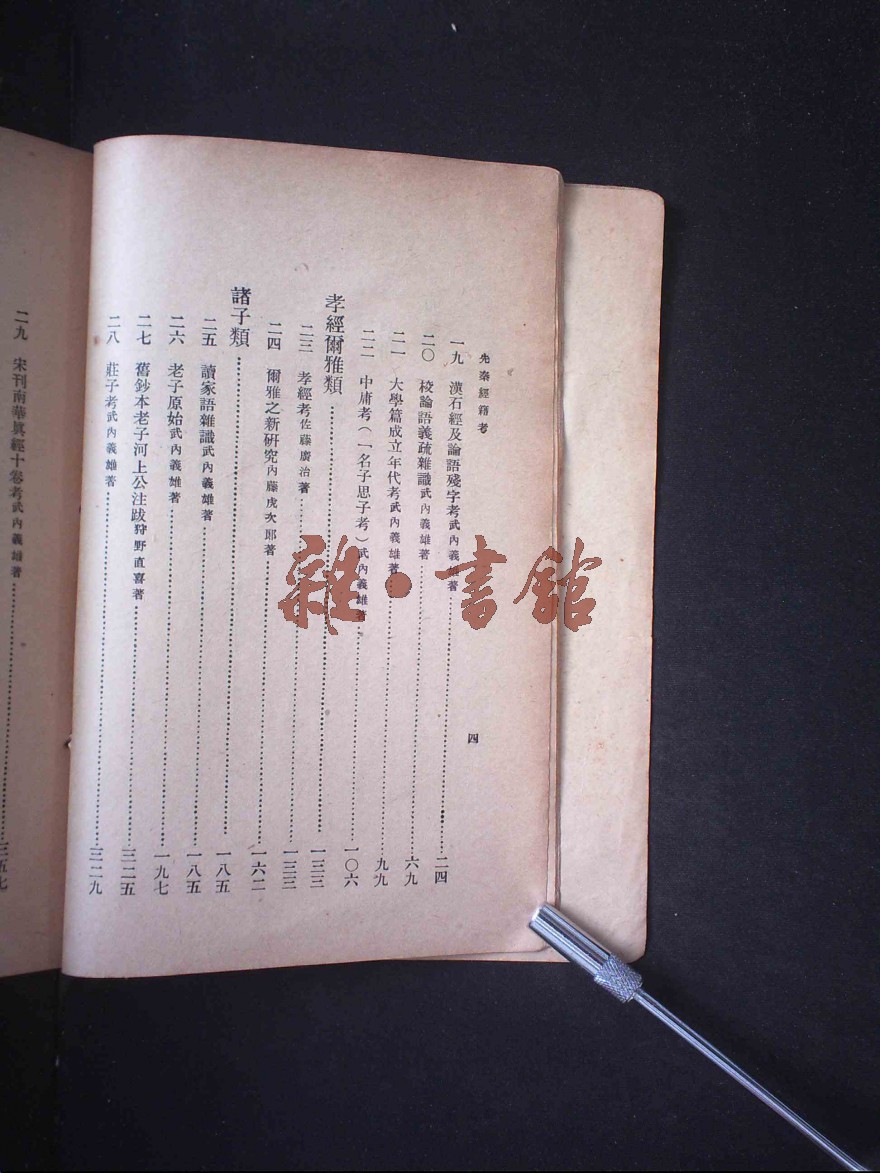 先秦經籍考
四
一九 漢石經及論語殘字考 武內義雄著 二四
二〇 校論語義疏雜識 武內義雄著 六九
二一 大學篇成立年代考 武內義雄著 九九
二二 中庸考(一名子思子考) 武內義雄著 一〇六
孝經爾雅類 一三三
二三 孝經考 佐藤廣治著 一三三
二四 爾雅之新研究 內藤虎次郎著 一六二
諸子類 一八五
二五 讀家語雜識 武內義雄著 一八五
二六 老子原始 武內義雄著 一九七
二七 舊鈔本老子河上公注跋 狩野直喜著 三二五
二八 莊子考 武內義雄著 三二九
二九 宋刊南華眞經十卷考 武內義雄著 三五七
雜·書館